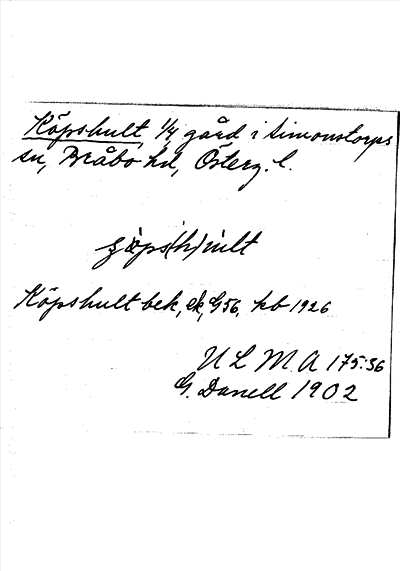 Köpshult, 1/4 gård i Simonstorps
sn, Bråbo hd, Österg. l.
Köpshult bek, ek, G56, kb 1926
ULMA 175:36
G. Danell 1902